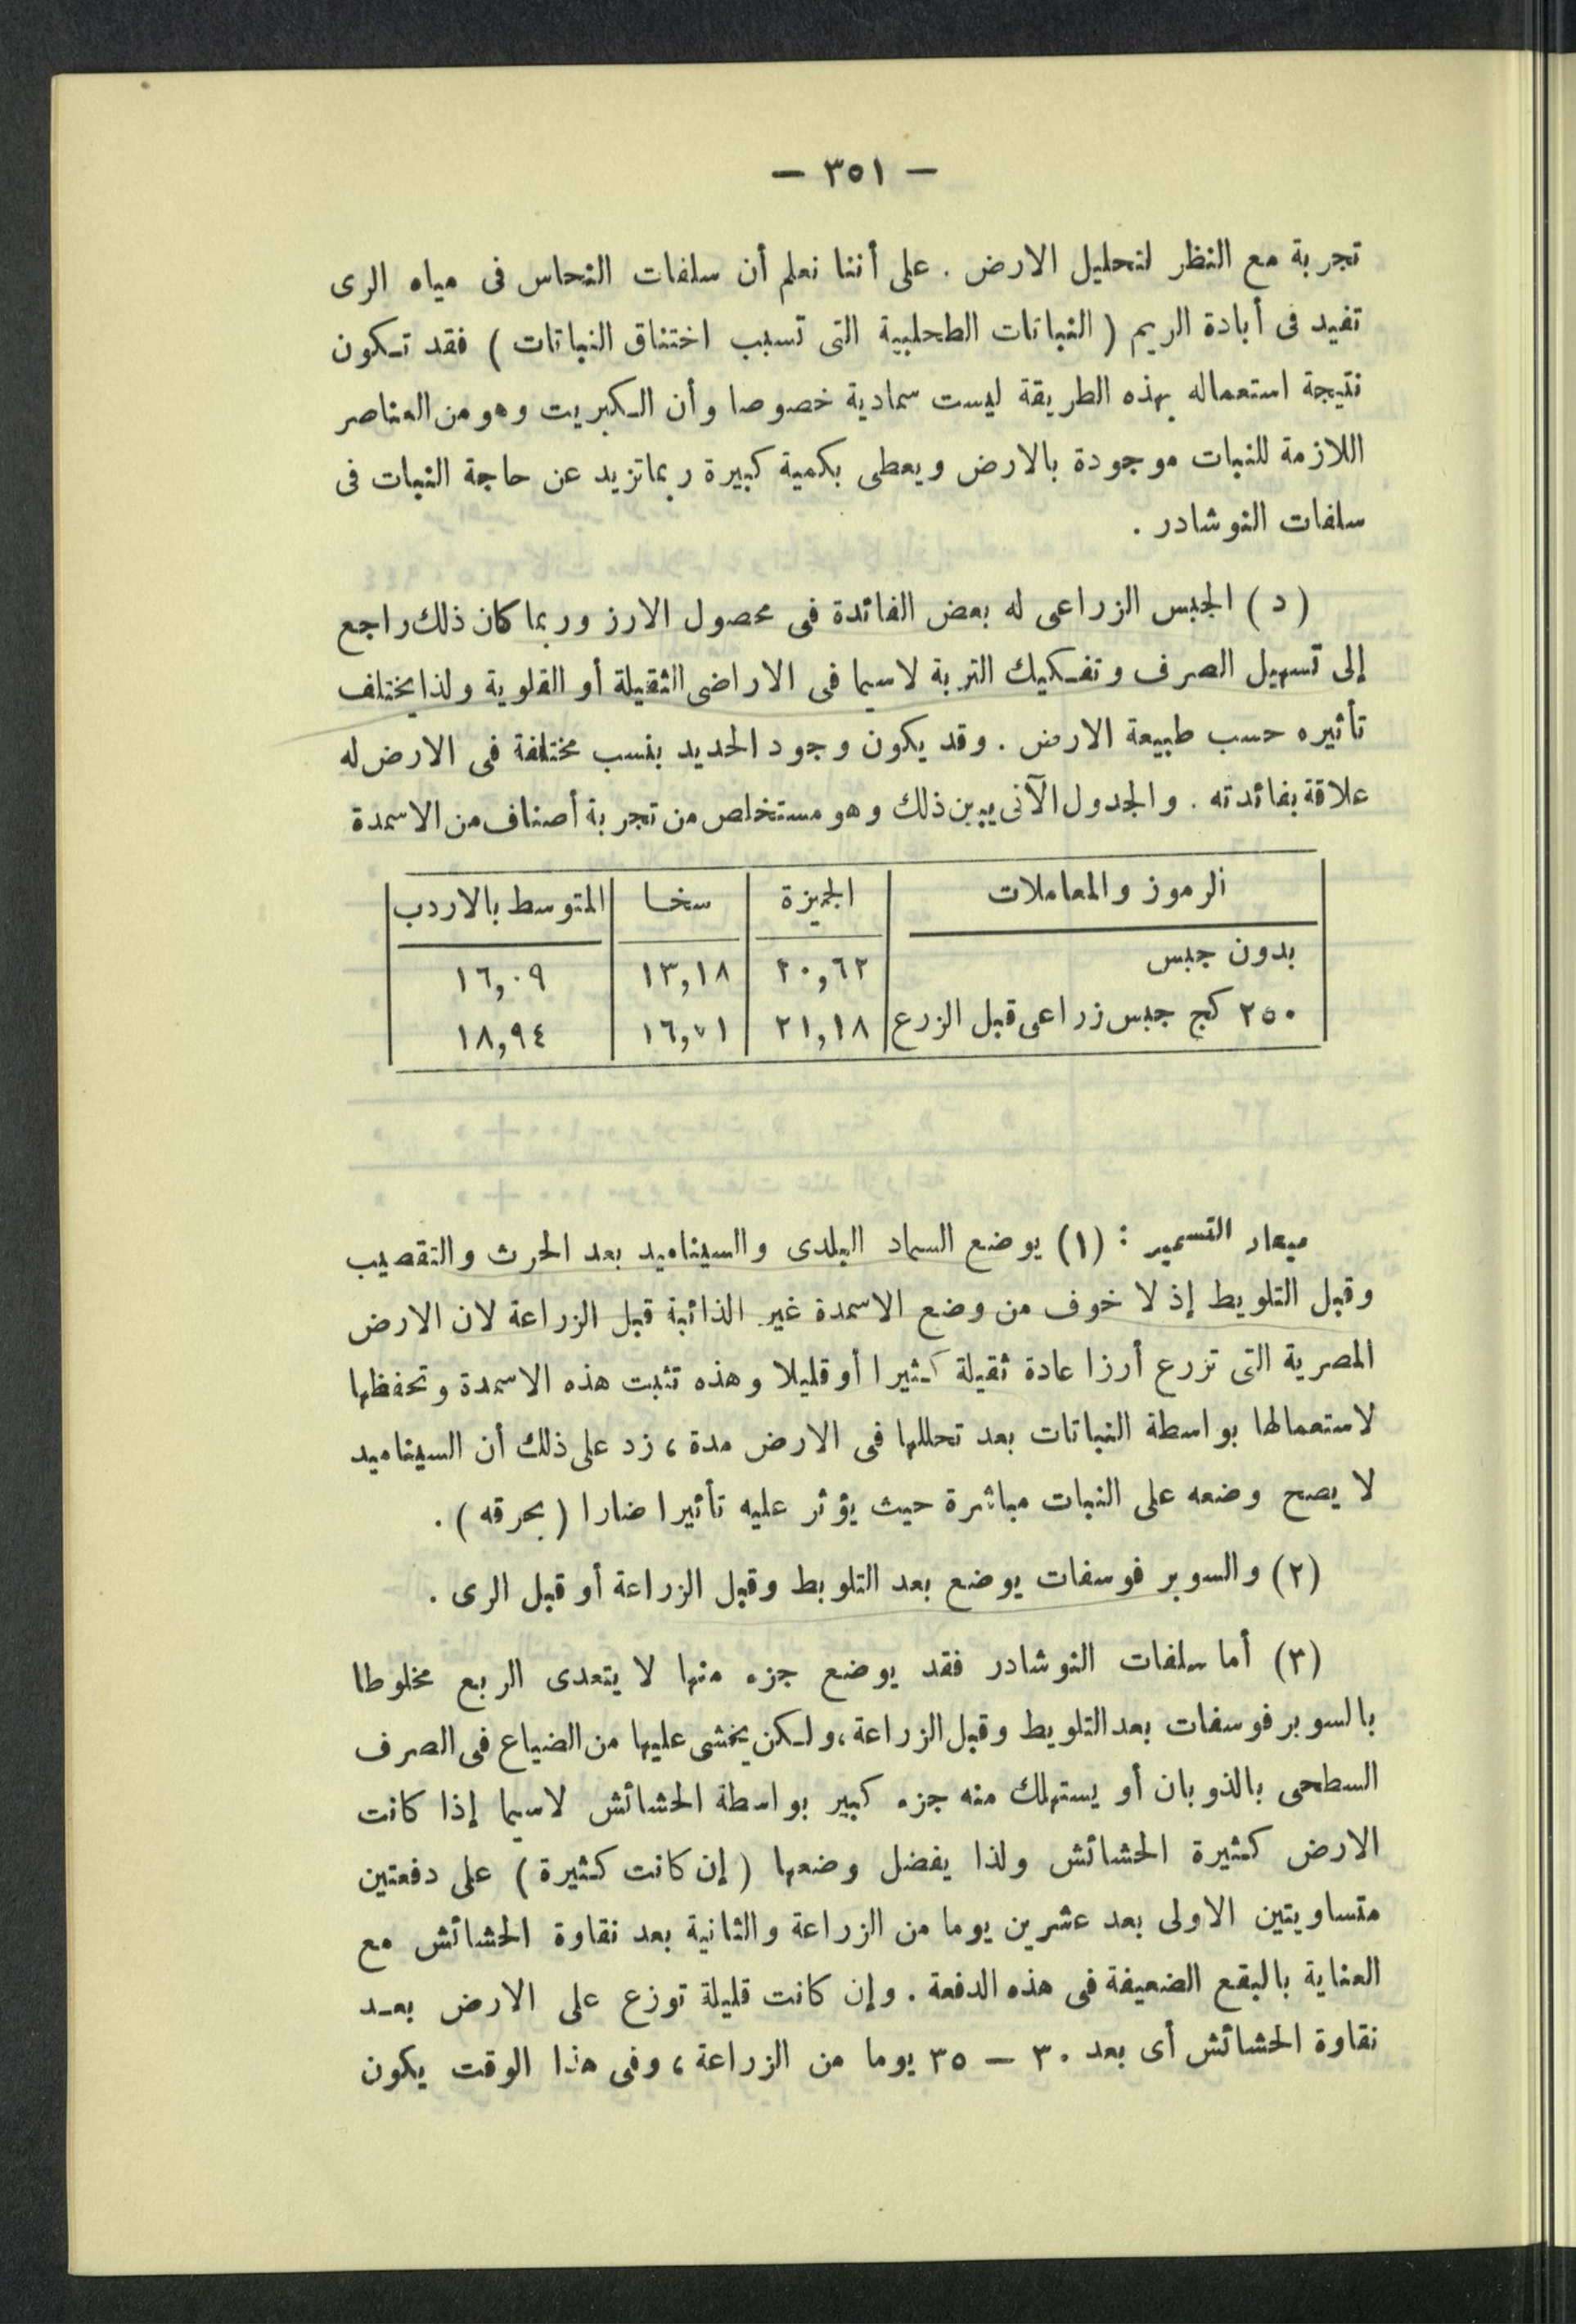 — ٣٥١ —
تجربة مع النظر لتحليل الارض . على أننا نعلم أن سلفات النحاس فى مياه الرى
تفيد فى أبادة الريم ( النباتات الطحلبية التى تسبب اختناق النباتات ) فقد تكون
نتيجة استعماله بهذه الطريقة ليست سمادية خصوصا وأن الكبريت وهو من العناصر
اللازمة للنبات موجودة بالارض ويعطى بكمية كبيرة ربما تزيد عن حاجة النبات فى
سلفات النوشادر .
( د ) الجبس الزراعى له بعض الفائدة فى محصول الارز وربما كان ذلك راجع
إلى تسهيل الصرف وتفكيك التربة لاسيما فى الاراضى الثقيلة أو القلوية ولذا يختلف
تأثيره حسب طبيعة الارض . وقد يكون وجود الحديد بنسب مختلفة فى الارض له
علاقة بفائدته . والجدول الآتى يبين ذلك وهو مستخلص من تجربة أصناف من الاسمدة
الرموز والمعاملات الجيزة سخا المتوسط بالاردب
بدون جبس ٢٠,٦٢ ١٣,١٨ ١٦,٠٩
٢٥٠ كج جبس زراعى قبل الزرع ٢١,١٨ ١٦,٧١ ١٨,٩٤
ميعاد التسميد : (١) يوضع السماد البلدى والسيناميد بعد الحرث والتقصيب
وقبل التلويط إذ لا خوف من وضع الاسمدة غير الذائبة قبل الزراعة لان الارض
المصرية التى تزرع أرزا عادة ثقيلة كثيرا أو قليلا وهذه تثبت هذه الاسمدة وتحفظها
لاستعمالها بواسطة النباتات بعد تحللها فى الارض مدة ، زد على ذلك أن السيناميد
لا يصح وضعه على النبات مباشرة حيث يؤثر عليه تأثيرا ضارا ( بحرقه ) .
(٢) والسوبر فوسفات يوضع بعد التلويط وقبل الزراعة أو قبل الرى .
(٣) أما سلفات النوشادر فقد يوضع جزء منها لا يتعدى الربع مخلوطا
بالسوبر فوسفات بعد التلويط وقبل الزراعة ، ولكن يخشى عليها من الضياع فى الصرف
السطحى بالذوبان أو يستهلك منه جزء كبير بواسطة الحشائش لاسيما إذا كانت
الارض كثيرة الحشائش ولذا يفضل وضعها ( إن كانت كثيرة ) على دفعتين
متساويتين الاولى بعد عشرين يوما من الزراعة والثانية بعد نقاوة الحشائش مع
العناية بالبقع الضعيفة فى هذه الدفعة . وإن كانت قليلة توزع على الارض بعد
نقاوة الحشائش أى بعد ٣٠ — ٣٥ يوما من الزراعة ، وفى هذا الوقت يكون